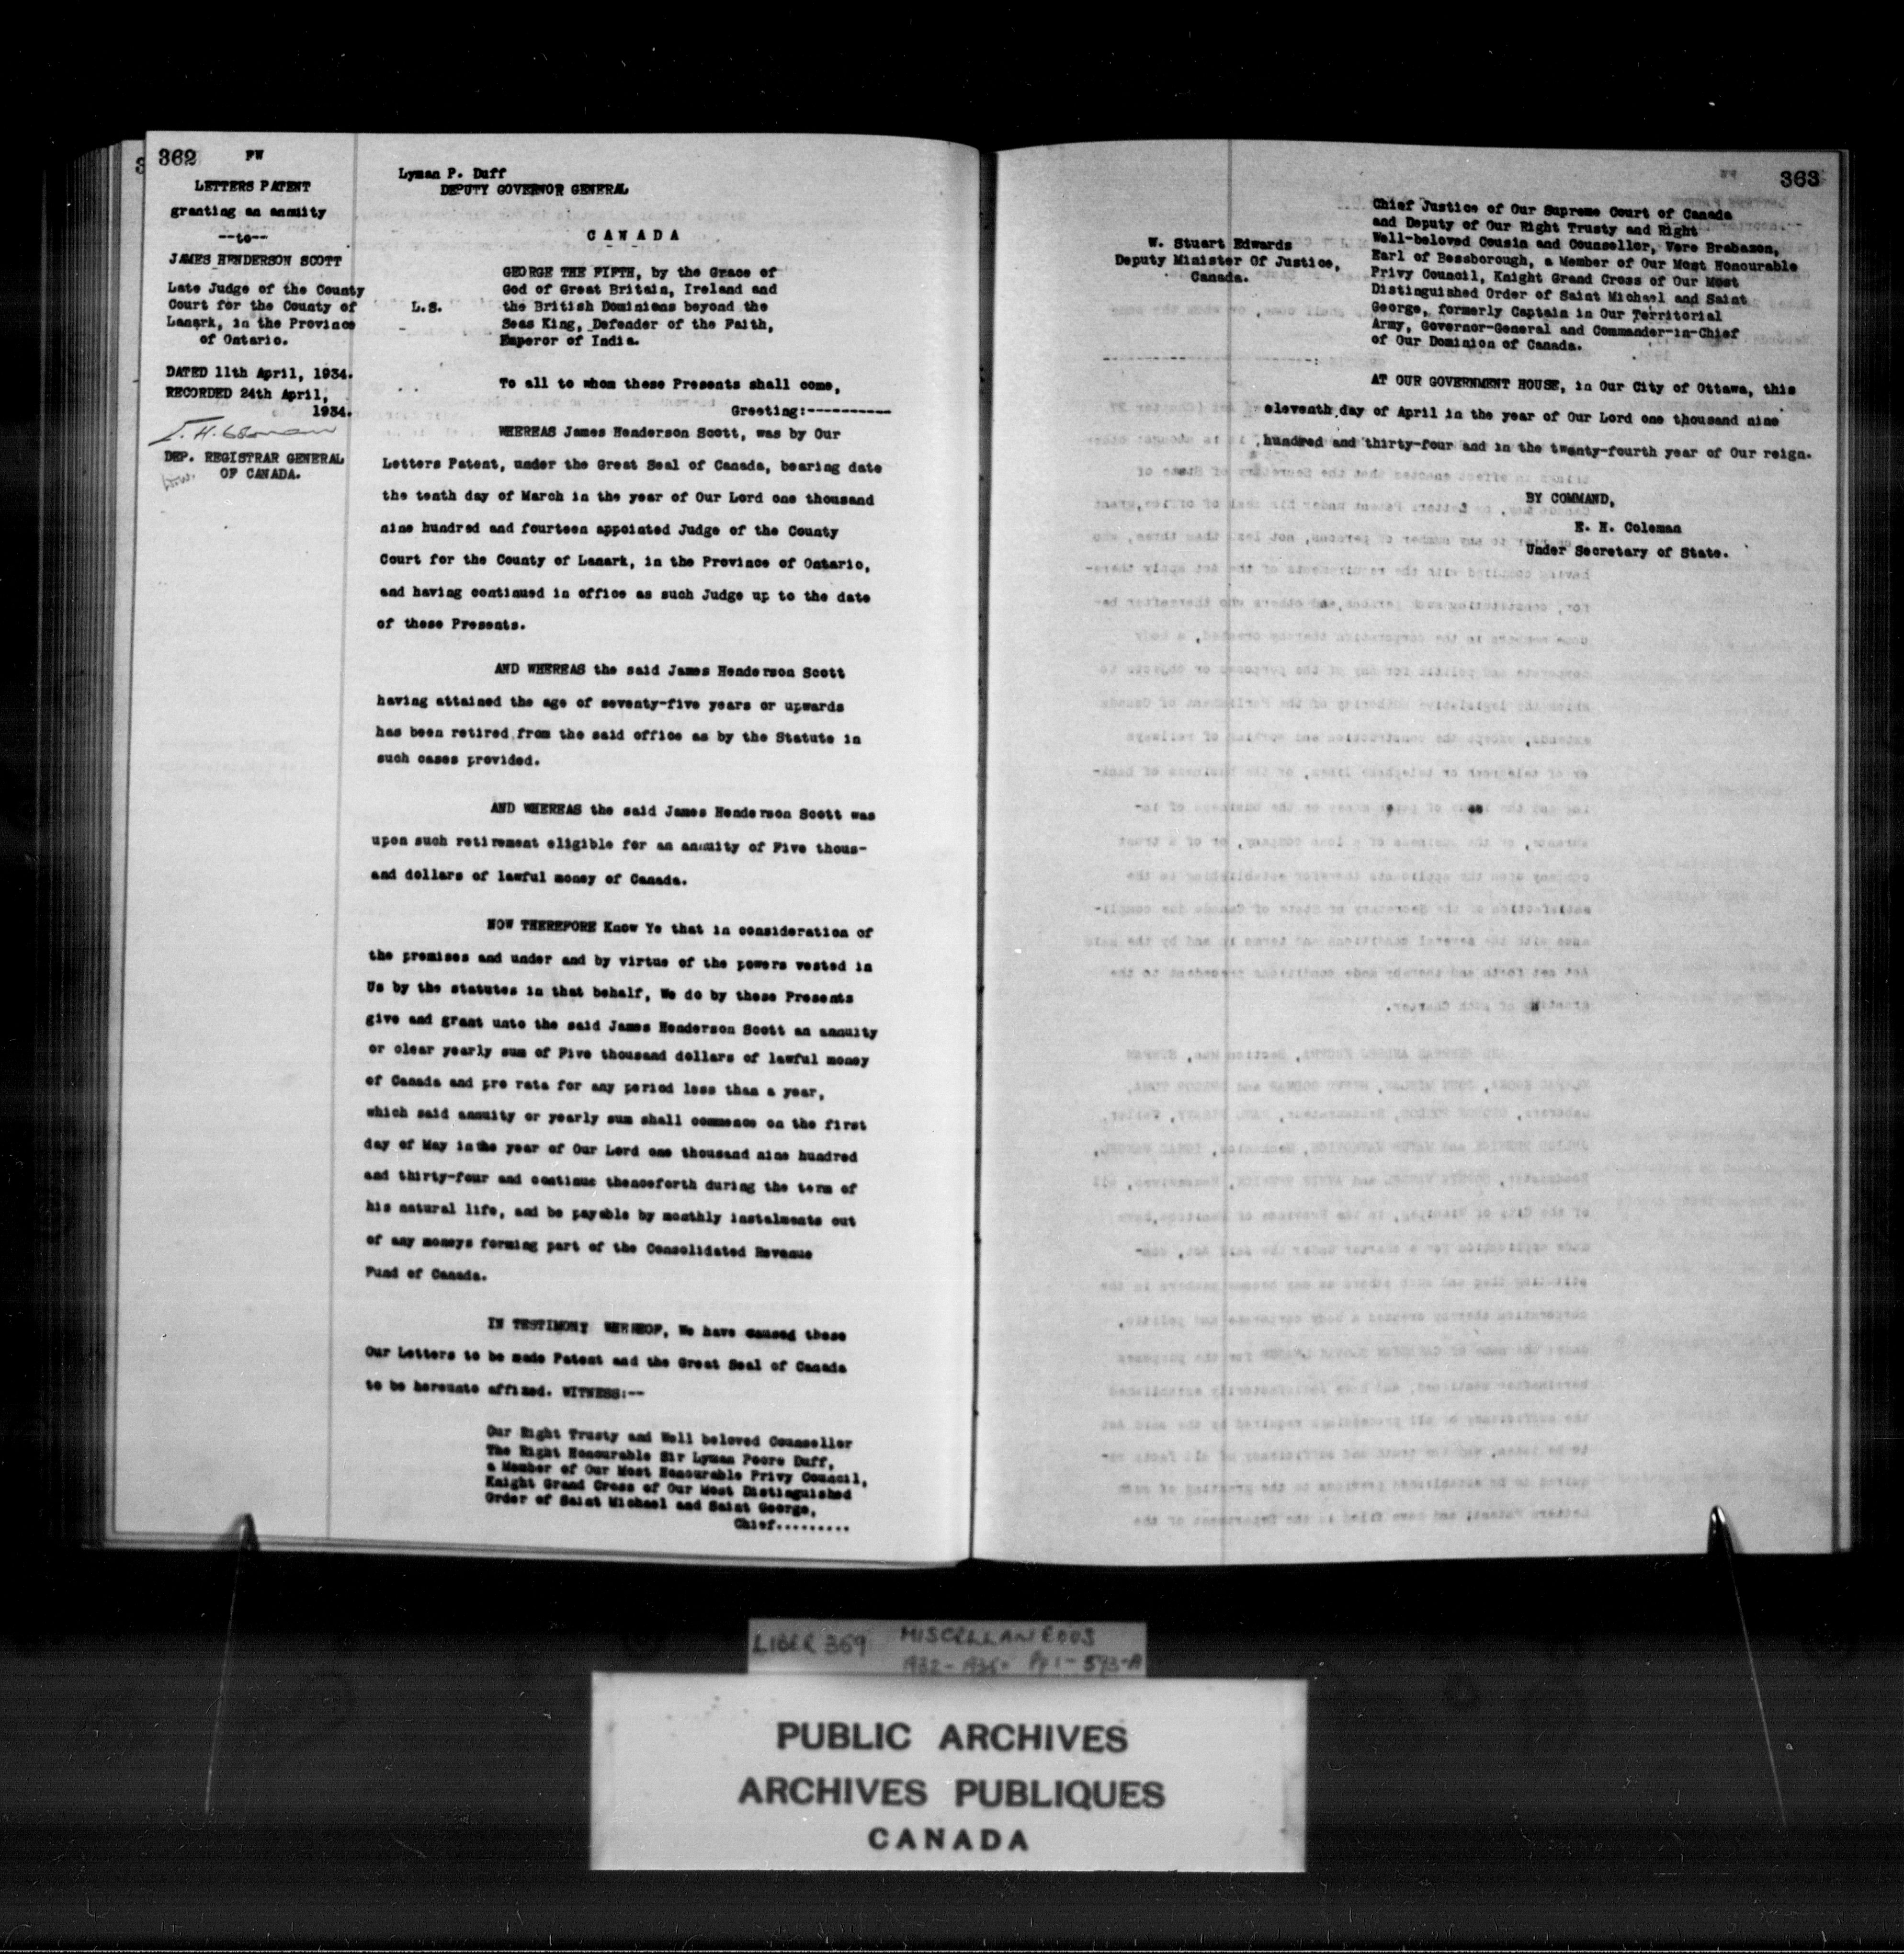 362
FW
LETTERS PATENT
granting an annuity
--to--
JAMES HENDERSON SCOTT
Late Judge of the County
Court for the County of
Lanark, in the Province
of Ontario.
DATED 11th April, 1934.
RECORDED 24th April,
1934.
DEP. REGISTRAR GENERAL
OF CANADA.
Lyman P. Duff
DEPUTY GOVERNOR GENERAL
CANADA
L.S.
GEORGE THE FIFTH, by the Grace of
God of Great Britain, Ireland and
the British Dominions beyond the
Seas King, Defender of the Faith,
Emperor of India.
To all to whom these Presents shall come,
Greeting:----------
WHEREAS James Henderson Scott, was by Our
Letters Patent, under the Great Seal of Canada, bearing date
the tenth day of March in the year of Our Lord one thousand
nine hundred and fourteen appointed Judge of the County
Court for the County of Lanark, in the Province of Ontario,
and having continued in office as such Judge up to the date
of these Presents.
AND WHEREAS the said James Henderson Scott
having attained the age of seventy-five years or upwards
has been retired from the said office as by the Statute in
such cases provided.
AND WHEREAS the said James Henderson Scott was
upon such retirement eligible for an annuity of Five thous-
and dollars of lawful money of Canada.
NOW THEREFORE Know Ye that in consideration of
the premises and under and by virtue of the powers vested in
Us by the statutes in that behalf, We do by these Presents
give and grant unto the said James Henderson Scott an annuity
or clear yearly sum of Five thousand dollars of lawful money
of Canada and pro rata for any period less than a year,
which said annuity or yearly sum shall commence on the first
day of May in the year of Our Lord one thousand nine hundred
and thirty-four and continue thenceforth during the term of
his natural life, and be payable by monthly instalments out
of any moneys forming part of the Consolidated Revenue
Fund of Canada.
IN TESTIMONY WHEREOF, We have caused these
Our Letters to be made Patent and the Great Seal of Canada
to be hereunto affixed. WITNESS:--
Our Right Trusty and Well beloved Counsellor
The Right Honourable Sir Lyman Poore Duff,
a Member of Our Most Honourable Privy Council,
Knight Grand Cross of Our Most Distinguished
Order of Saint Michael and Saint George,
Chief.........
363
W. Stuart Edwards
Deputy Minister Of Justice,
Canada.
Chief Justice of Our Supreme Court of Canada
and Deputy of Our Right Trusty and Right
Well-beloved Cousin and Counsellor, Vere Brabazon,
Earl of Bessborough, a Member of Our Most Honourable
Privy Council, Knight Grand Cross of Our Most
Distinguished Order of Saint Michael and Saint
George, formerly Captain in Our Territorial
Army, Governor-General and Commander-in-Chief
of Our Dominion of Canada.
AT OUR GOVERNMENT HOUSE, in Our City of Ottawa, this
eleventh day of April in the year of Our Lord one thousand nine
hundred and thirty-four and in the twenty-fourth year of Our reign.
BY COMMAND,
E. H. Coleman
Under Secretary of State.
LIBER 369 MISCELLANEOUS
1932-1935 Pp 1-593-A
PUBLIC ARCHIVES
ARCHIVES PUBLIQUES
CANADA